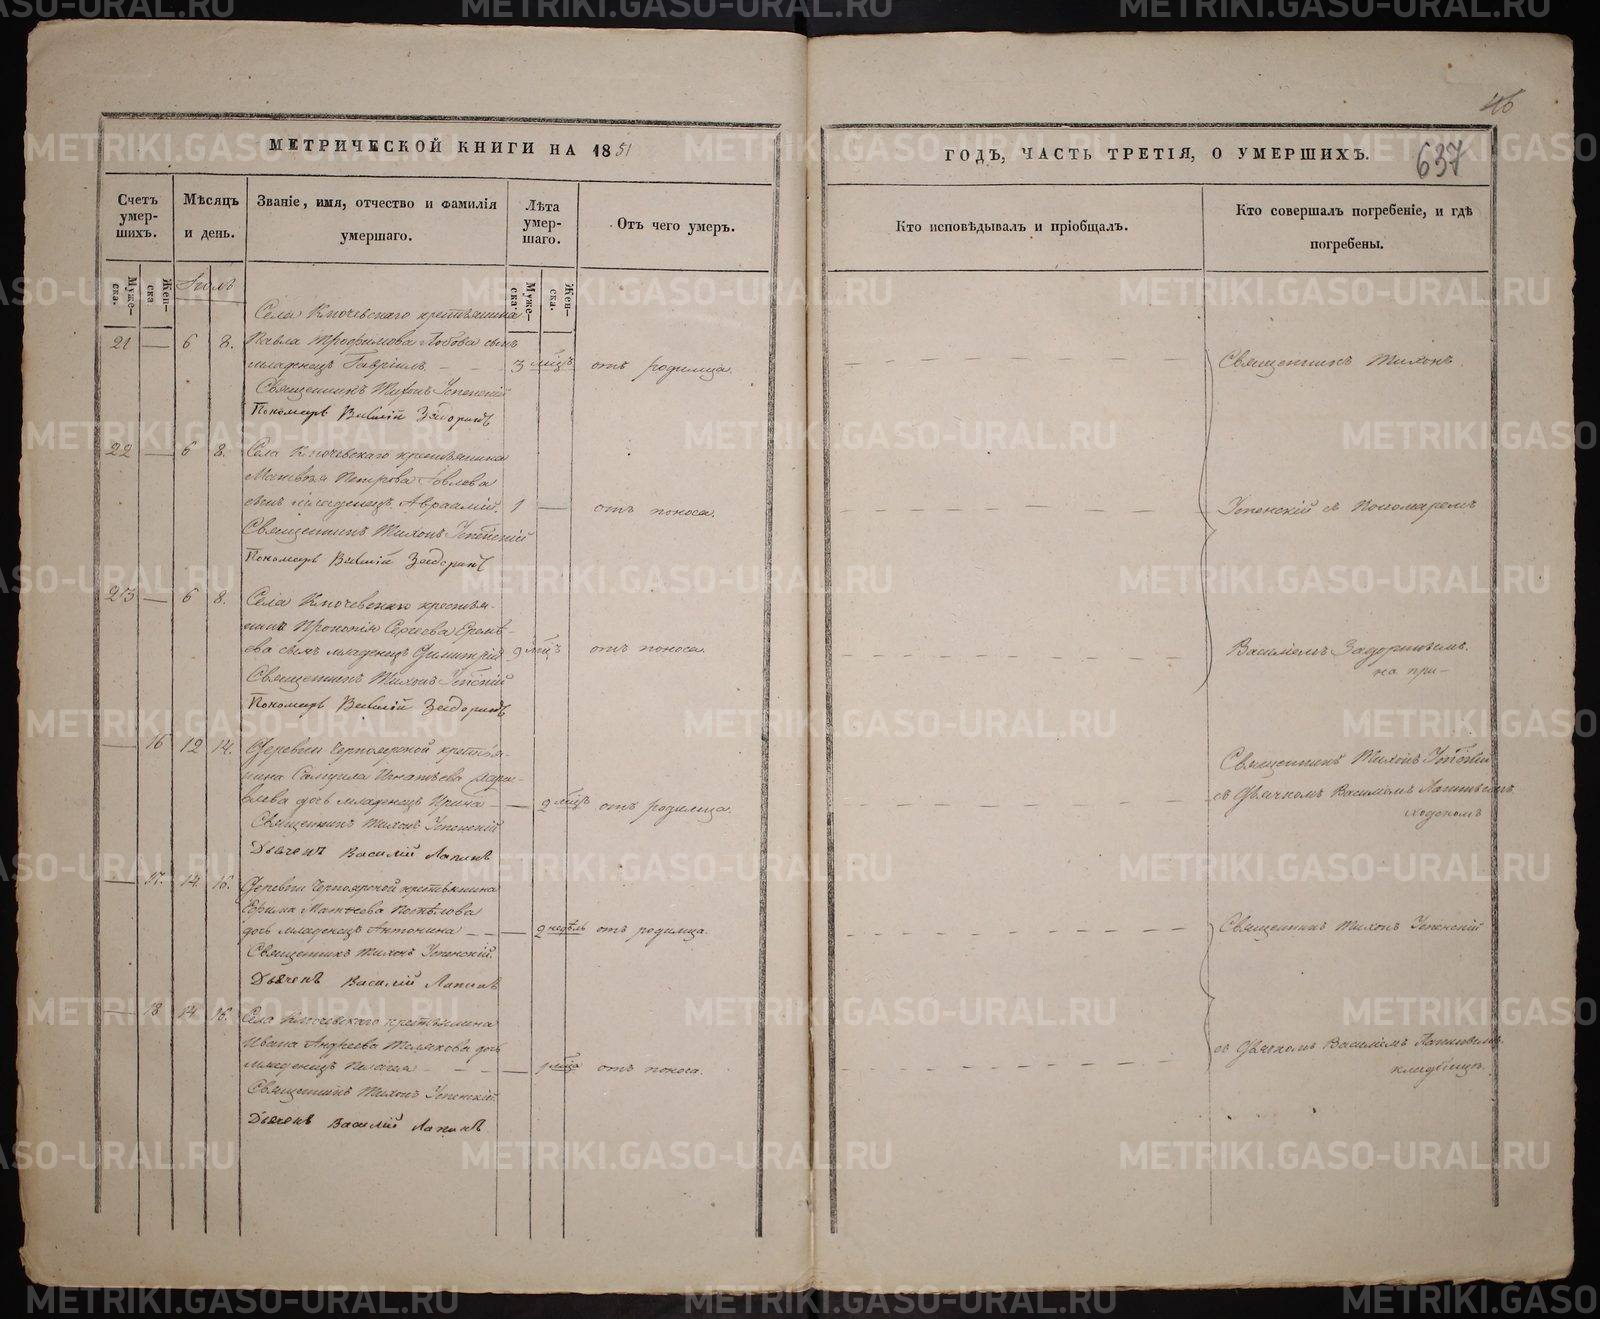 46
637
МЕТРИЧЕСКОЙ КНИГИ НА 1851
ГОДЪ, ЧАСТЬ ТРЕТІЯ, О УМЕРШИХЪ.
Счетъ умер-шихъ.
Мѣсяцъ и день.
Званіе, имя, отчество и фамилія умершаго.
Лѣта умер-шаго.
Отъ чего умеръ.
Кто исповѣдывалъ и пріобщалъ.
Кто совершалъ погребеніе, и гдѣ погребены.
Муже-ска.
Жен-ска
Муже-ска
Жен-ска.
Села Ключевскаго крестьянина
21 — 6 8. Павла Трофимова сынъ
младенецъ Гавріилъ — — 3 мѣц. отъ родимца. Священникъ Тихонъ
Священникъ Тихонъ Успенскій
Пономарь Василій Задоринъ
22 — 6 8. Села Ключевскаго крестьянина
Матвѣя Петрова
сынъ младенецъ Авраамій. 1 — отъ поноса. Успенскій съ Пономаремъ
Священникъ Тихонъ Успенскій
Пономарь Василій Задоринъ
23 — 6 8. Села Ключевскаго крестья-
нина Прокопія Сергѣева Еремѣ-
ева сынъ младенецъ Димитрій 9 мѣц. отъ поноса. Василіемъ Задоринымъ.
на при-
Священникъ Тихонъ Успенскій
Пономарь Василій Задоринъ
— 16 12 14. Деревни Черноярской крестья-
нина Самуила Игнатьева
дочь младенецъ Ирина — — 2 мѣц. отъ родимца.
Священникъ Тихонъ Успенскій
съ Дьячкомъ Василіемъ Лапинымъ
ходскомъ
Священникъ Тихонъ Успенскій
Дьячекъ Василій Лапинъ
— 17. 14. 16. Деревни Черноярской крестьянина
Ефима Матѳеева Поспѣлова
дочь младенецъ Антонина — — — 9 недѣль отъ родимца. Священникъ Тихонъ Успенскій
Священникъ Тихонъ Успенскій.
Дьячекъ Василій Лапинъ
— 18 14. 16. Села Ключевскаго крестьянина
Ивана Андреева дочь
младенецъ Пелагія — — — 1 отъ поноса. съ Дьячкомъ Василіемъ Лапинымъ
кладбищѣ.
Священникъ Тихонъ Успенскій.
Дьячекъ Василій Лапинъ
METRIKI.GASO-URAL.RU